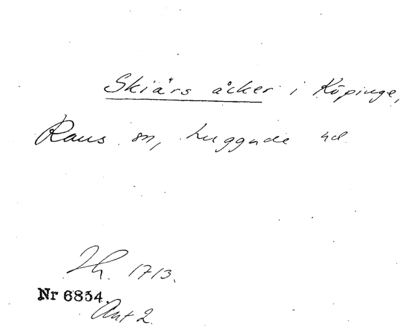 Skiärs åcker i Köpinge,
Raus sn, Luggude hd
Th. 1713.
Nr 6854.
Ant 2.